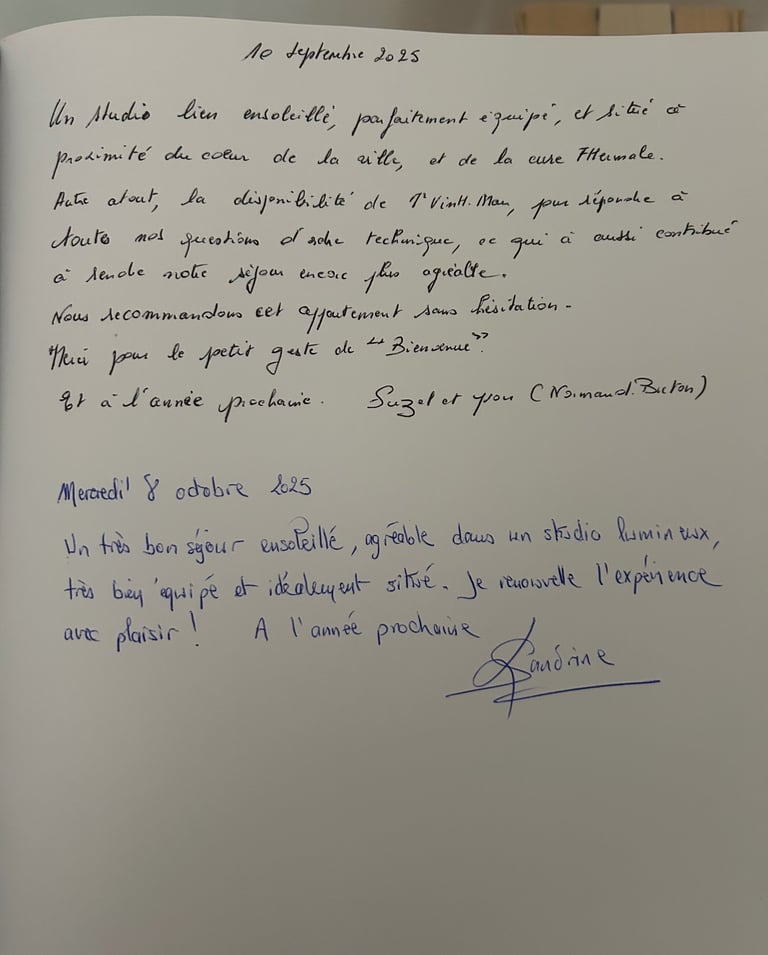 10 septembre 2025
Un studio bien ensoleillé, parfaitement équipé, et situé à
proximité du coeur de la ville, et de la cure THermale.
Autre atout, la disponibilité de pour répondre à
toutes nos questions d'ordre technique, ce qui à aussi contribué
à rendre notre séjour encore plus agréable.
Nous recommandons cet appartement sans hésitation.
Merci pour le petit geste de "Bienvenue".
Et à l'année prochaine. Suzel et Yvon (Normand.Breton)
Mercredi 8 octobre 2025
Un très bon séjour ensoleillé, agréable dans un studio lumineux,
très bien équipé et idéalement situé. Je renouvelle l'expérience
avec plaisir ! A l'année prochaine
Sandrine